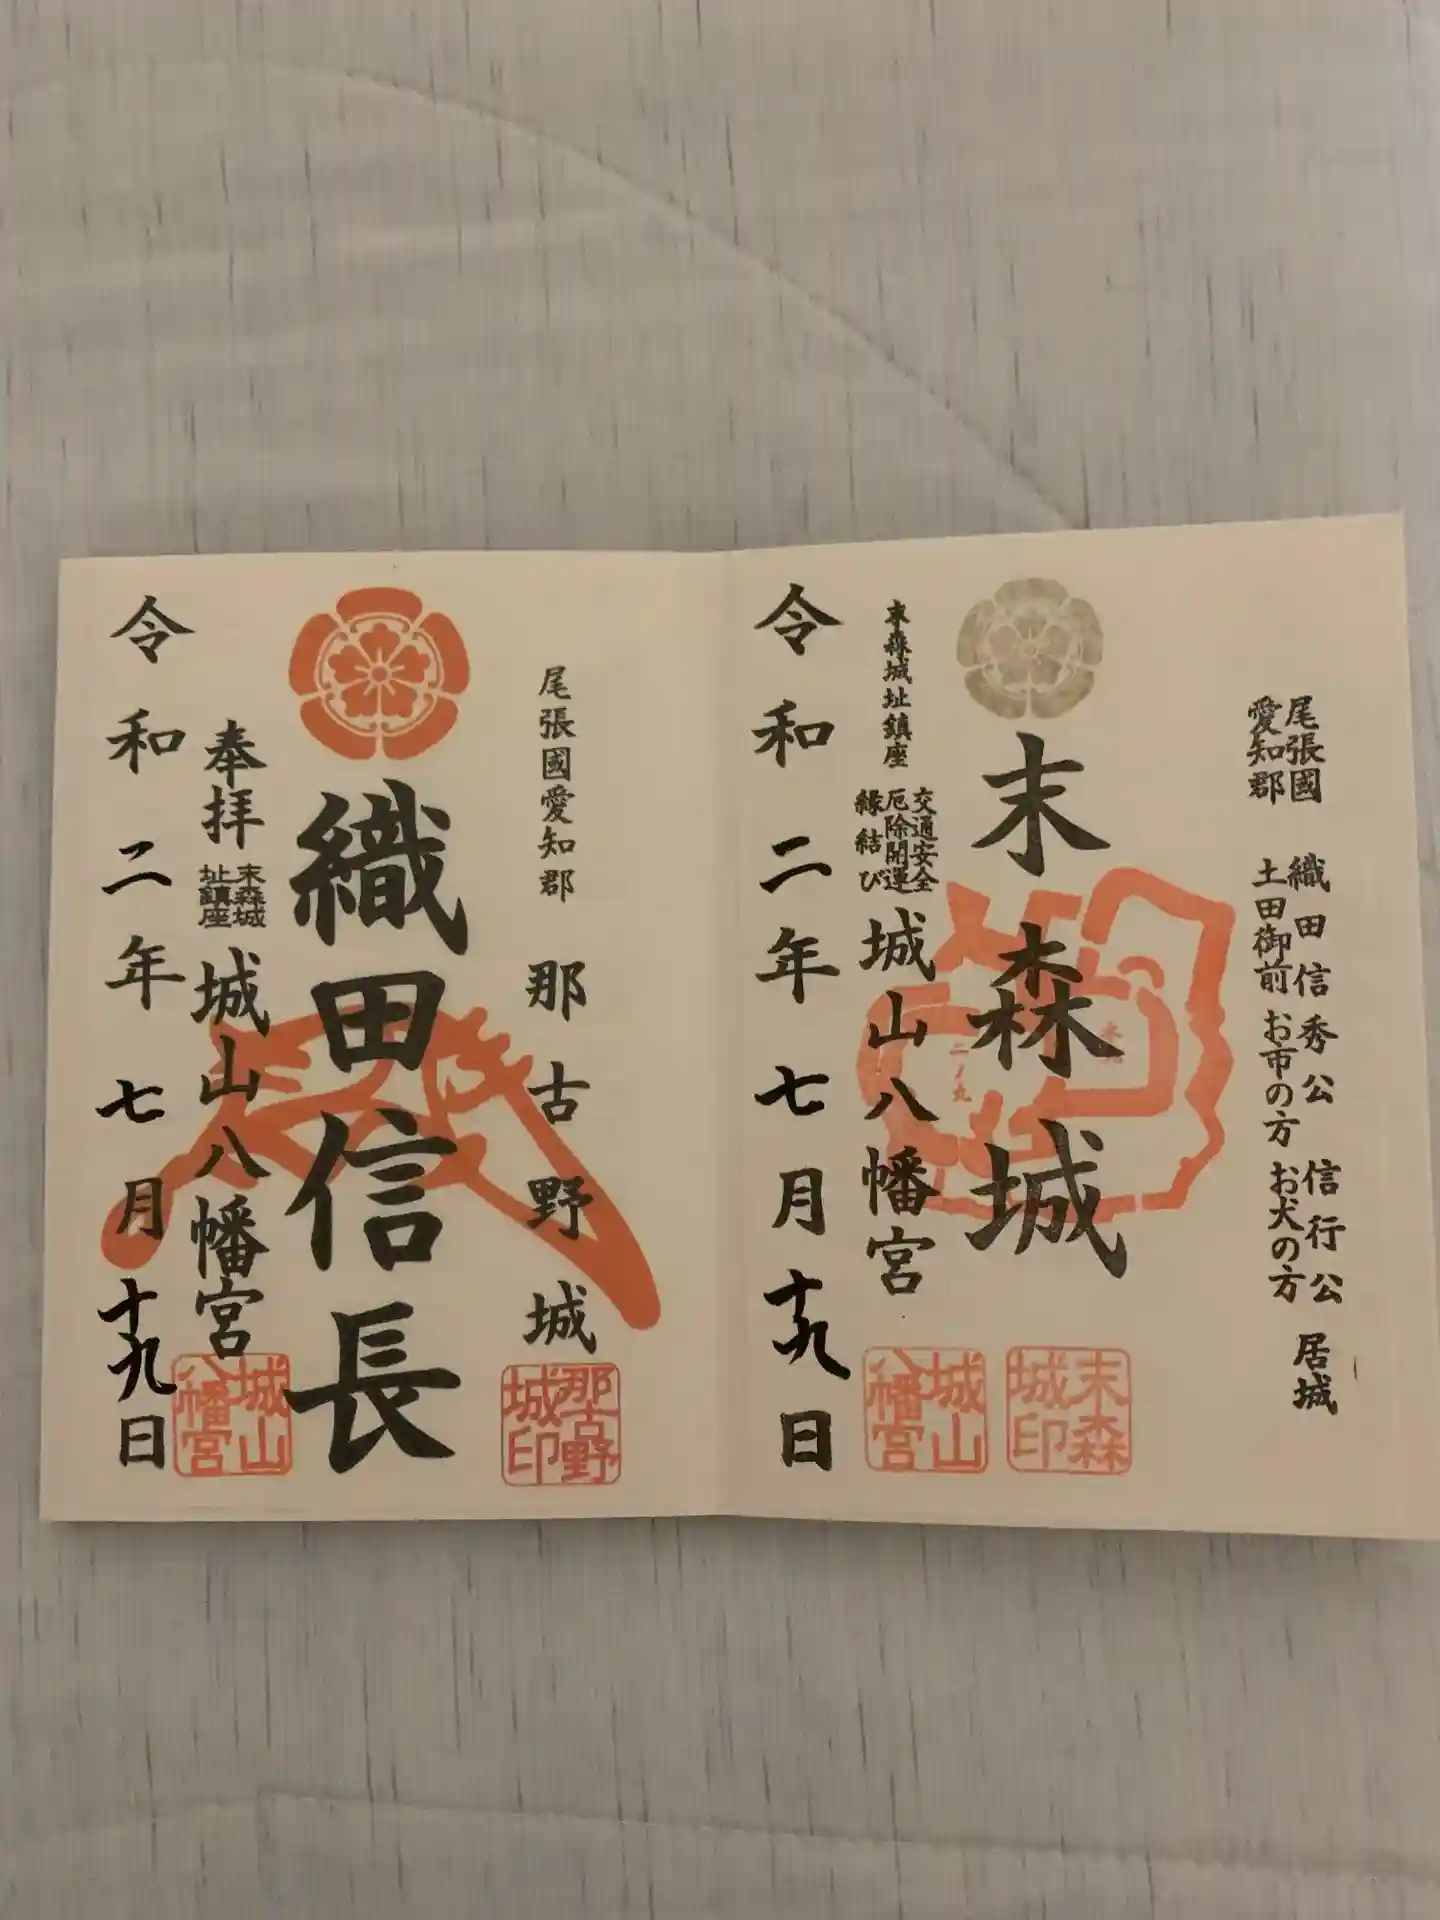 尾張國
愛知郡
織田信秀公 信行公 居城
土田御前 お市の方 お犬の方
末森城
二ノ丸
末森城印
末森城址鎮座
交通安全
厄除開運
縁結び
城山八幡宮
城山八幡宮
令和二年七月十九日
尾張國愛知郡 那古野城
那古野城印
織田信長
奉拝
末森城
址鎮座
城山八幡宮
城山八幡宮
令和二年七月十九日